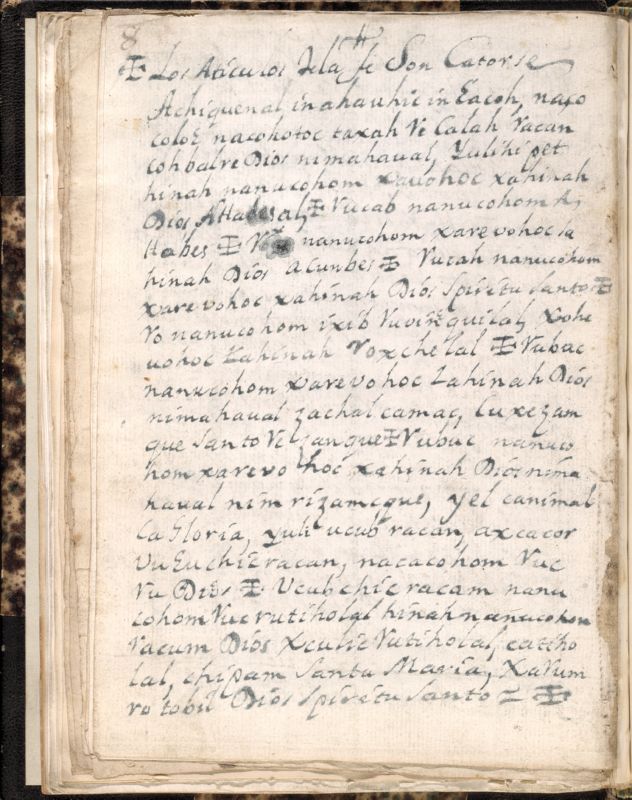 8
✠ Los Aticulos De la fe Son Catorse
Achiquenal in ahauhic in Eacoh, naco
coloE nacohotoc taxah Ve Calah Vacan
cohbalre Dios nimahaual, Yulihi pet
hinah nanucohom xavohoc xahinah
Dios Attadesal, ✠ Vucab nanucohom A,
Habes ✠ nanucohom xarevohoc la
hinah Dios Acunbes ✠ Vucah nanucohom
xarevohoc xahinah Dios Spiritu santo ✠
Vo nanucohom ixib Vuvirequilal, xohe
uohoc Lahinah Voxchelal ✠ Vubac
nanucohom xarevohoc Lahinah Dios
nimahaual zachal camac, Cuxezam
que santo Ve zanque ✠ Vubuc nanuco
hom xarevo hoc xahinah Dios nima
haual nim rizamcque, yel canimal
La Gloria, yuli ucub racan, axcacor
Vu Euchic racan, nacacohom Vuc
Vu Dios ✠ Ucubchic racam nanu
cohom Vuc rutiholal hinah nanucohom
racum Dios Xculic Vutiholal, cattho
lal, chipam Santa Maria, Xarum
ro tobil Dios Spiritu Santo ✠